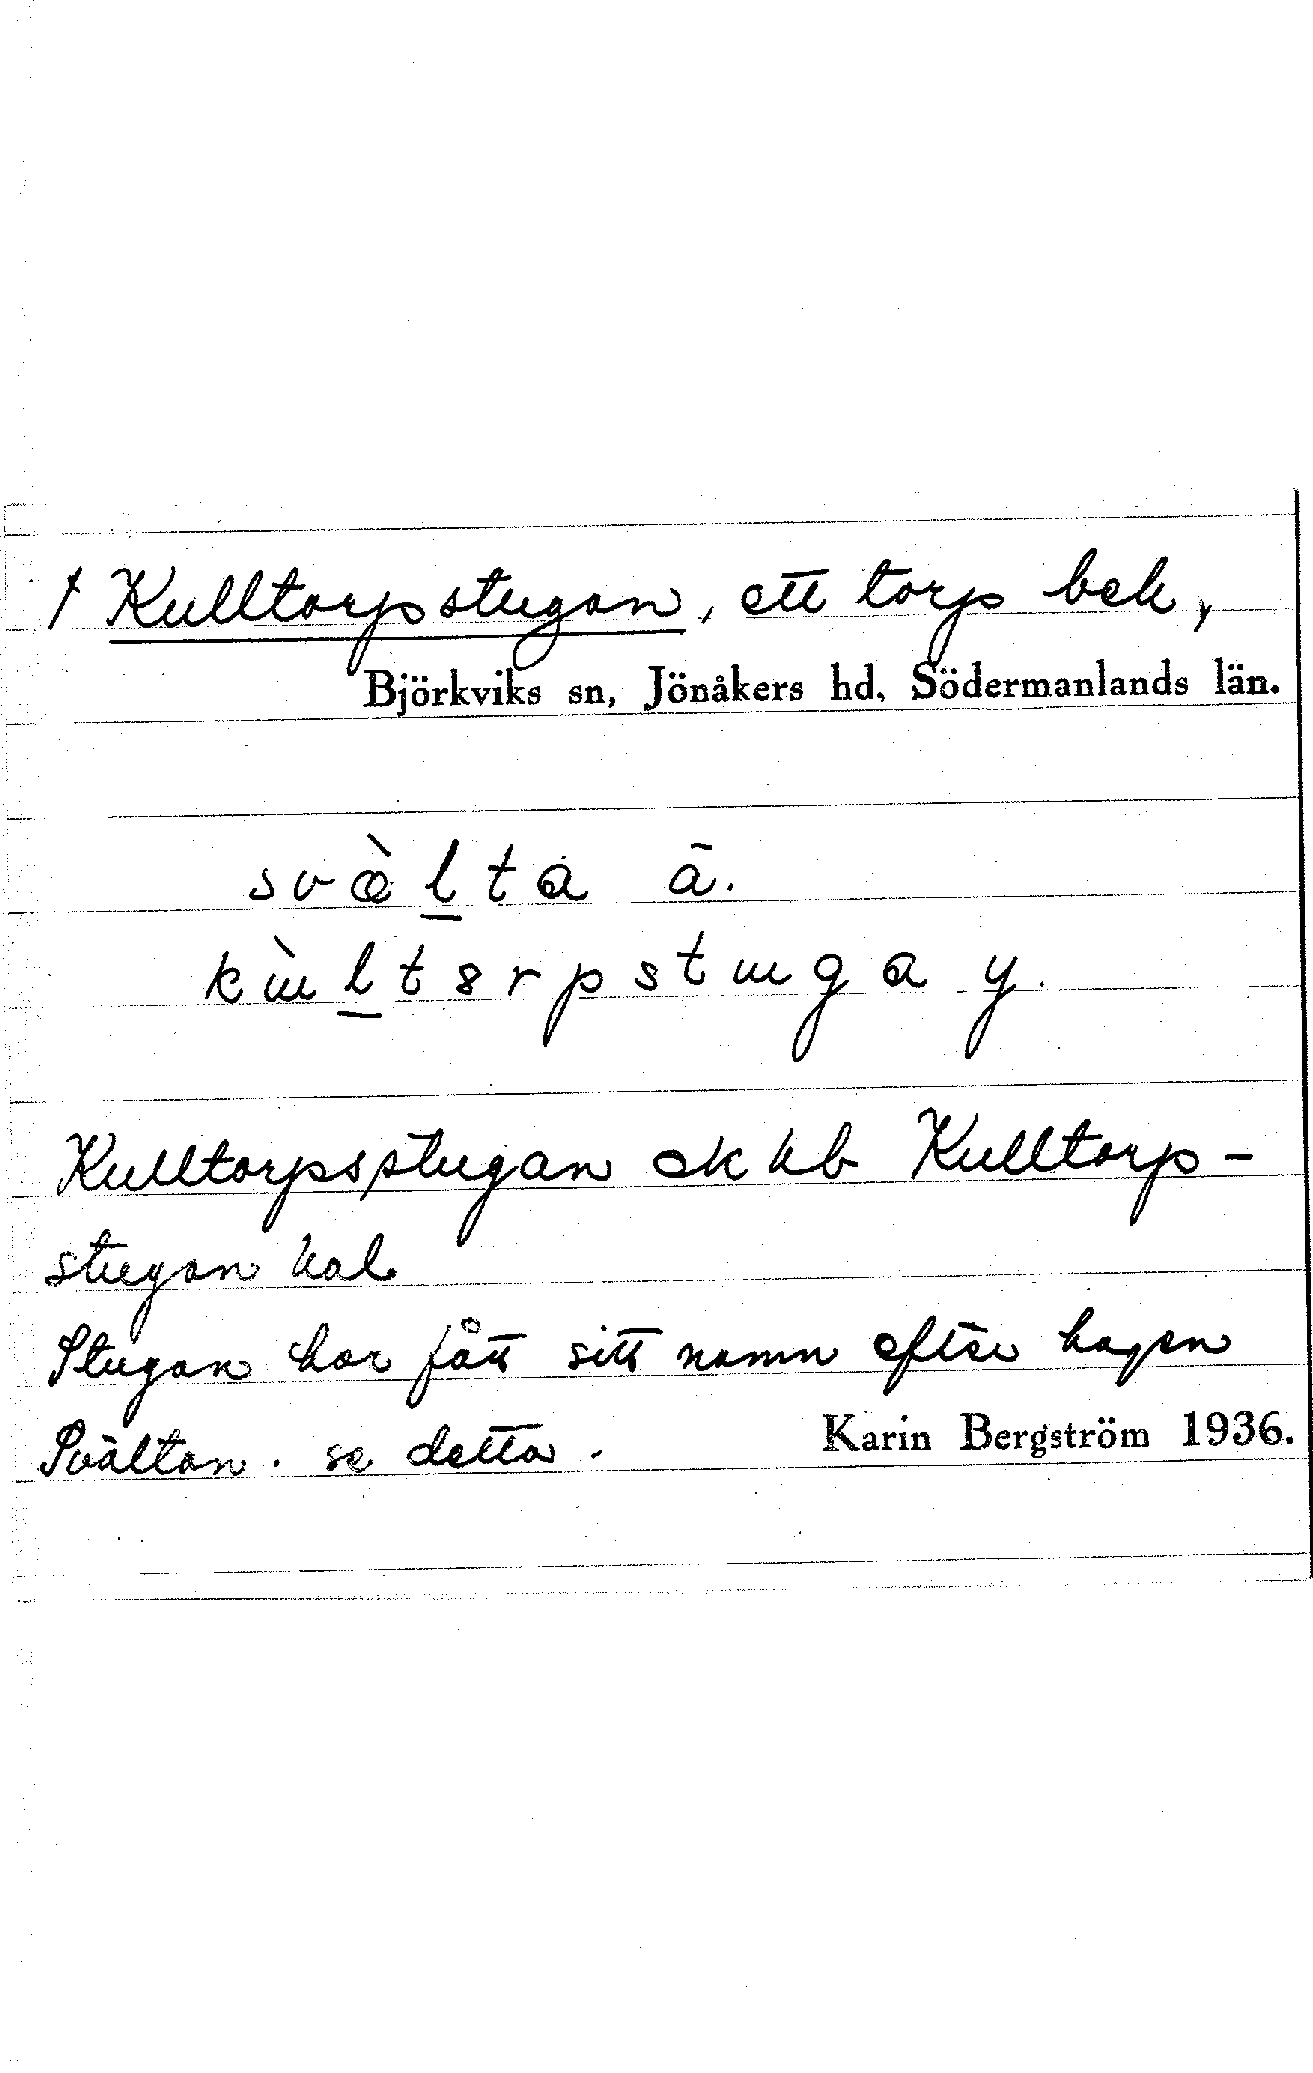 † Kulltorpstugan, ett torp beb,
Björkviks sn, Jönåkers hd, Södermanlands län.
svæ̀l̠ta ā.
kɯ̀l̠tɞrpstɯgaŋ.
Kulltorpsstugan ek kb Kulltorp-
stugan hal
Stugan har fått sitt namn efter hagen
Svältan. se detta.
Karin Bergström 1936.